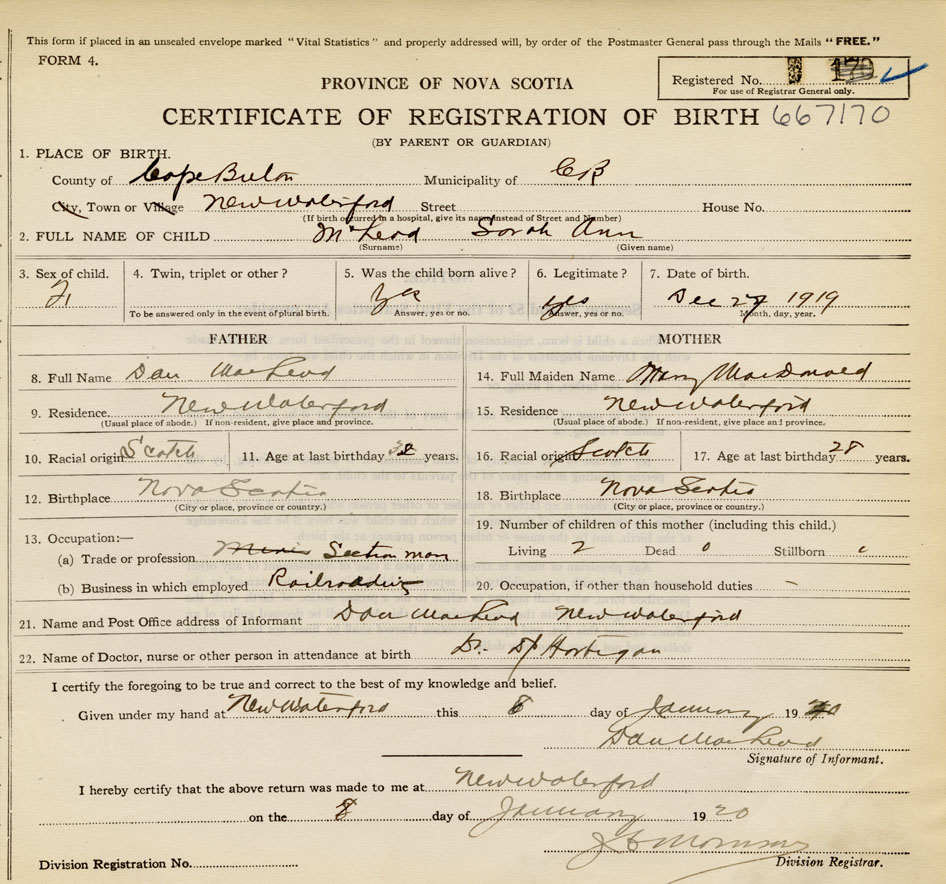 This form if placed in an unsealed envelope marked "Vital Statistics" and properly addressed will, by order of the Postmaster General pass through the Mails "FREE."
FORM 4.
Registered No. 170
For use of Registrar General only.
PROVINCE OF NOVA SCOTIA
CERTIFICATE OF REGISTRATION OF BIRTH 667170
(BY PARENT OR GUARDIAN)
1. PLACE OF BIRTH.
County of Cape Breton Municipality of CB
City, Town or Village New Waterford Street House No.
(If birth occurred in a hospital, give its name instead of Street and Number)
2. FULL NAME OF CHILD McLeod Sarah Ann
(Surname) (Given name)
3. Sex of child. 4. Twin, triplet or other? 5. Was the child born alive? 6. Legitimate? 7. Date of birth.
F. Yes Yes Dec 27 1919
To be answered only in the event of plural birth. Answer, yes or no. Answer, yes or no. Month, day, year.
FATHER MOTHER
8. Full Name Dan MacLeod 14. Full Maiden Name Mary MacDonald
9. Residence New Waterford 15. Residence New Waterford
(Usual place of abode.) If non-resident, give place and province. (Usual place of abode.) If non-resident, give place and province.
10. Racial origin Scotch 11. Age at last birthday years. 16. Racial origin Scotch 17. Age at last birthday 28 years.
12. Birthplace Nova Scotia 18. Birthplace Nova Scotia
(City or place, province or country.) (City or place, province or country.)
13. Occupation:— 19. Number of children of this mother (including this child.)
(a) Trade or profession Section man Living 2 Dead 0 Stillborn
(b) Business in which employed Railroading 20. Occupation, if other than household duties -
21. Name and Post Office address of Informant Dan MacLeod New Waterford
22. Name of Doctor, nurse or other person in attendance at birth Dr. Hartigan
I certify the foregoing to be true and correct to the best of my knowledge and belief.
Given under my hand at New Waterford this 8 day of January 1920
Dan MacLeod
Signature of Informant.
I hereby certify that the above return was made to me at New Waterford
on the 8 day of January 1920
Division Registration No. Division Registrar.